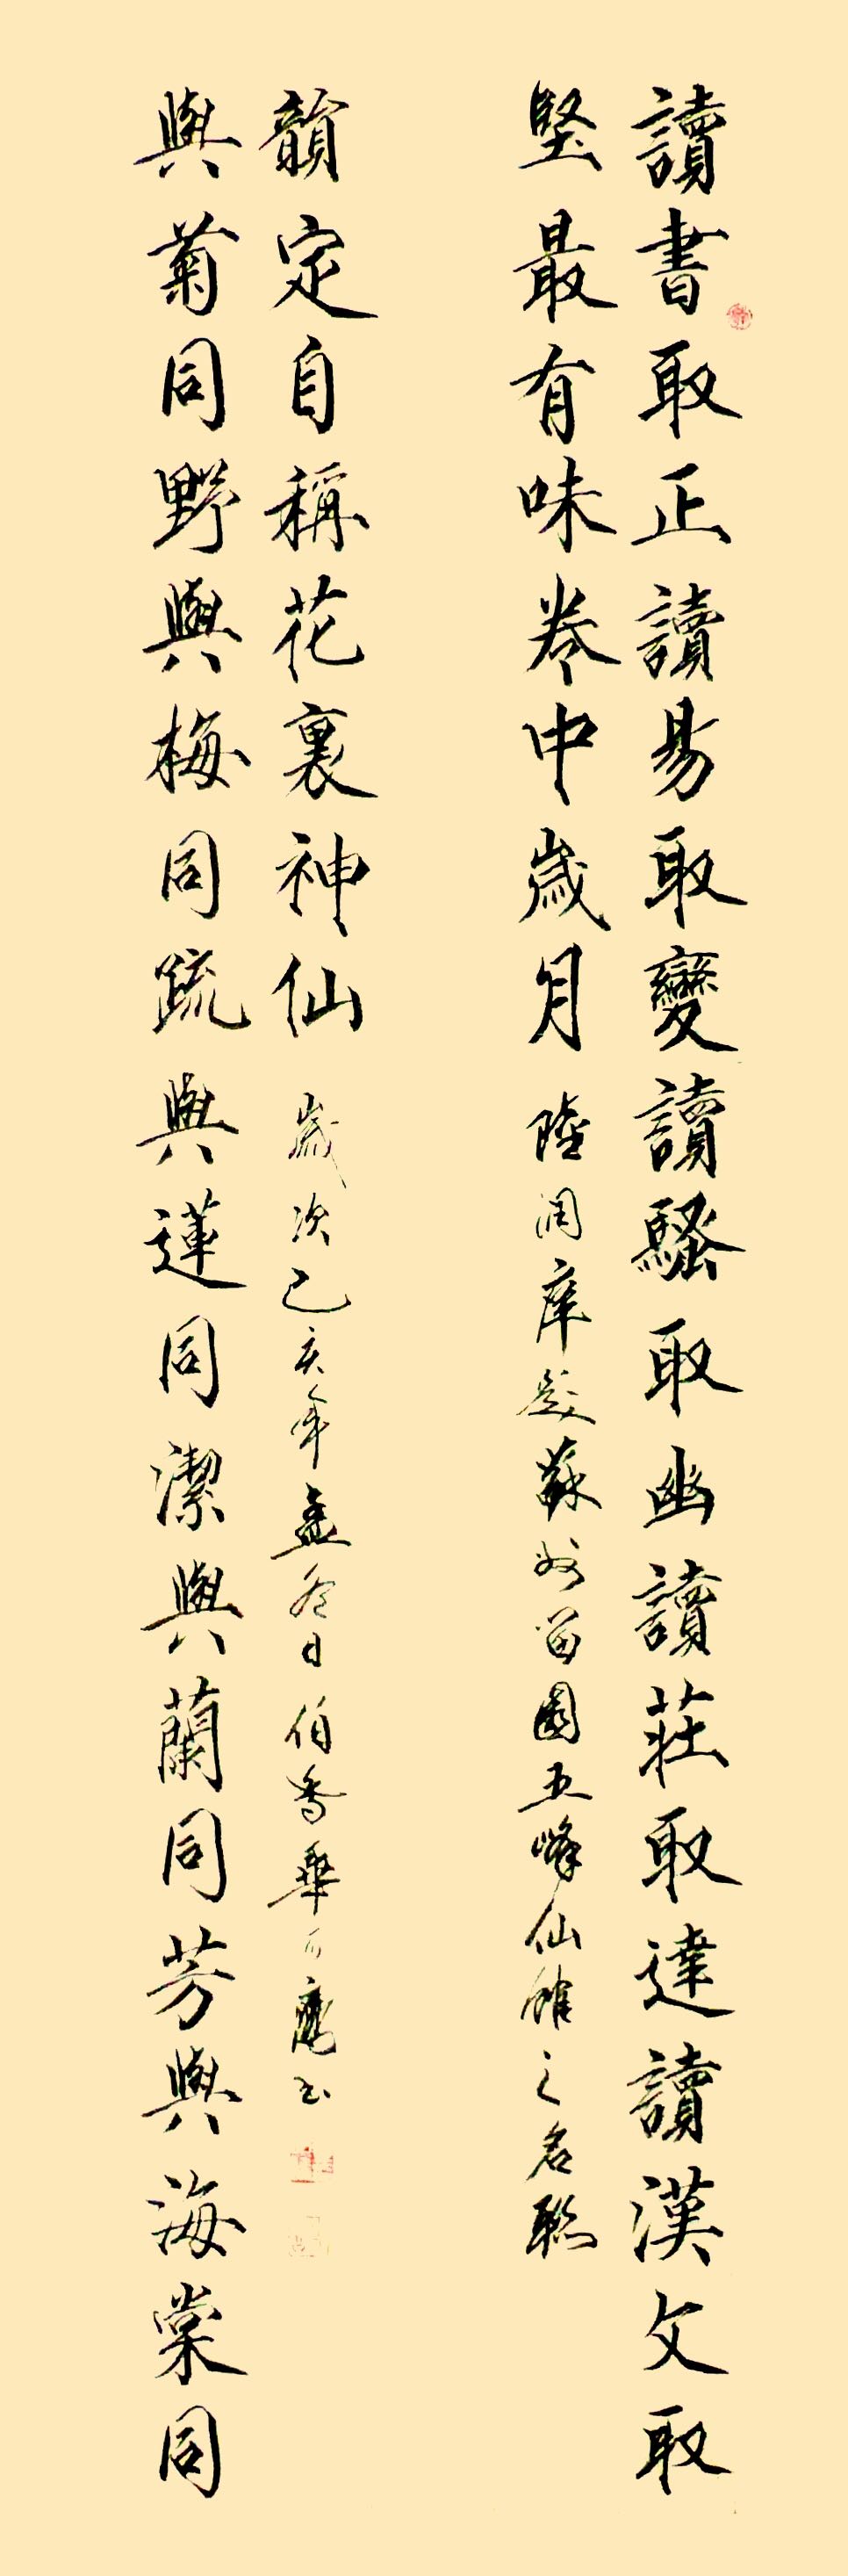 讀書取正讀易取變讀騷取幽讀莊取達讀漢文取
堅最有味卷中歲月 陸潤庠題蘇州留園五峰仙館之名聯
與菊同野與梅同疏與蓮同潔與蘭同芳與海棠同
韻定自稱花裏神仙 歲次己亥年孟冬日